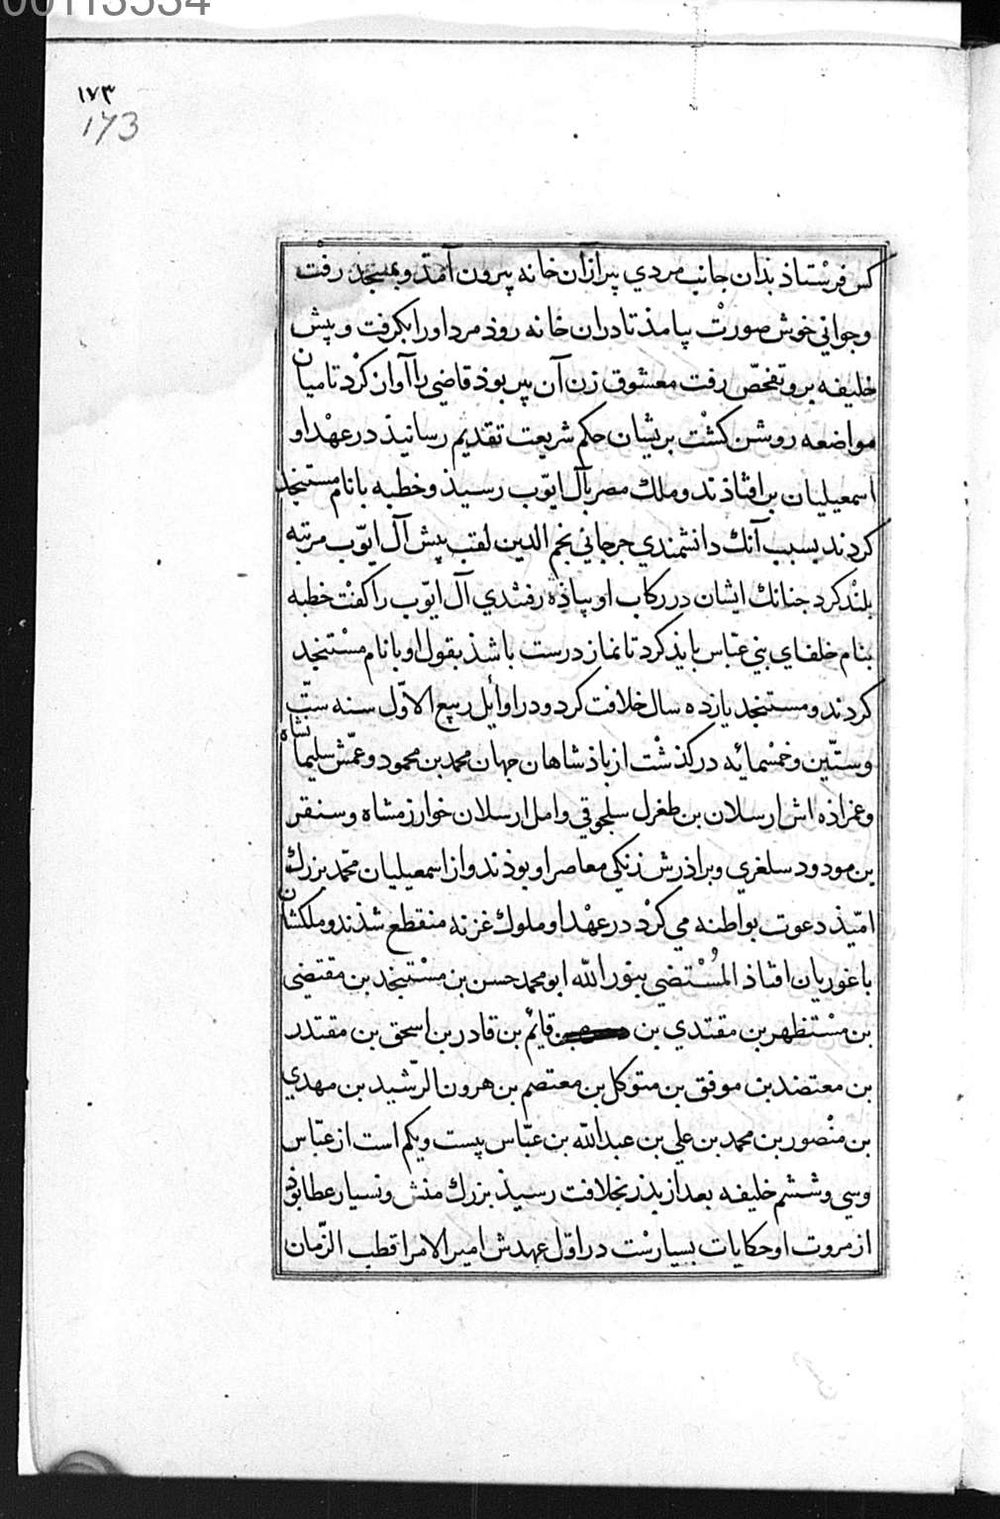 00113534
١٧٣
173
كس فرستاذ بذان جانب مردي پير ازان خانه بيرون آمذ و بمسجد رفت
و جواني خوش صورت بيامذ تا دران خانه روذ مرد او را بكرفت و پيش
خليفه برو تفحّص رفت معشوق زن آن پير بوذ قاضي را آواز كرد تا ميان
مواضعه روشن كشت بريشان حكم شريعت تقديم رسانيذ در عهد او
اسمعيليان بر افتاذند و ملك مصر بآل ايّوب رسيذ و خطبه با نام مستنجد
كردند بسبب آنك دانشمندي جرجاني نجم الدين لقب پيش آل ايّوب مرتبه
بلند كرد جنانك ايشان در ركاب او پياذه رفتندي آل ايّوب را كفت خطبه
بنام خلفاي بني عبّاس بايذ كرد تا نماز درست باشذ بقول او با نام مستنجد
كردند و مستنجد يازده سال خلافت كرد و در اوايل ربيع الاوّل سنه ستّ
و ستّين و خمسمائه در كذشت از پاذشاهان جهان محمد بن محمود و عمّش سليمانشاه
و عمزاذه اش ارسلان بن طغرل سلجوقي و امل ارسلان خوارزمشاه و سنقر
بن مودود سلغري و براذرش زنكي معاصر او بوذند و از اسمعيليان محمّد بزرك
امّيذ دعوت بواطنه مي كرد در عهد او ملوك غزنه منقطع شذند و ملكشان
با غوريان افتاذ المُستضي بنور الله ابو محمد حسن بن مستنجد بن مقتضي
بن مستظهر بن مقتدي بن قايم بن قادر بن اسحق بن مقتدر
بن معتضد بن موفق بن متوكل بن معتصم بن هرون الرّشيد بن مهدي
بن منصور بن محمد بن علي بن عبد الله بن عبّاس بيست و يكم است از عبّاس
و سي و ششم خليفه بعد از پذر بخلافت رسيذ بزرك منش و بسيار عطا بوذ
از مروت او حكايات بسيارست در اوّل عهدش امير الامرا قطب الزّمان